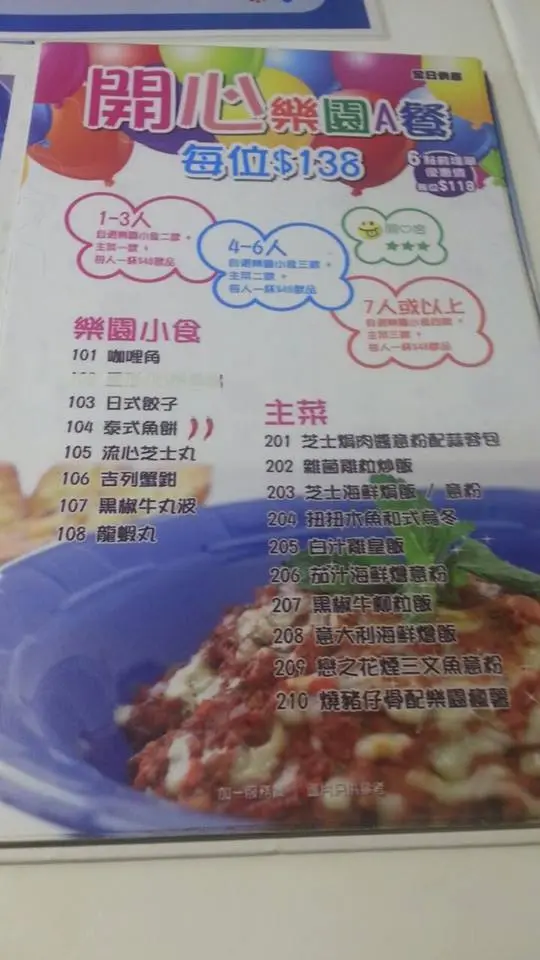 全日供應
開心樂園A餐
每位$138
優惠價
每位$118
1-3人
自選樂園小食二款，
主菜一款，
每人一杯$48飲品
4-6人
自選樂園小食三款，
主菜二款，
每人一杯$48飲品
開心容
★★★
7人或以上
自選樂園小食四款，
主菜三款，
每人一杯$48飲品
樂園小食
101 咖哩角
103 日式餃子
104 泰式魚餅
105 流心芝士丸
106 吉列蟹鉗
107 黑椒牛丸波
108 龍蝦丸
主菜
201 芝士焗肉醬意粉配蒜蓉包
202 雜菌雞粒炒飯
203 芝士海鮮焗飯 / 意粉
204 扭扭木魚和式烏冬
205 白汁雞皇飯
206 茄汁海鮮燴意粉
207 黑椒牛柳粒飯
208 意大利海鮮燴飯
209 戀之花煙三文魚意粉
210 燒豬仔骨配樂園種薯
加一服務費
圖片只供參考